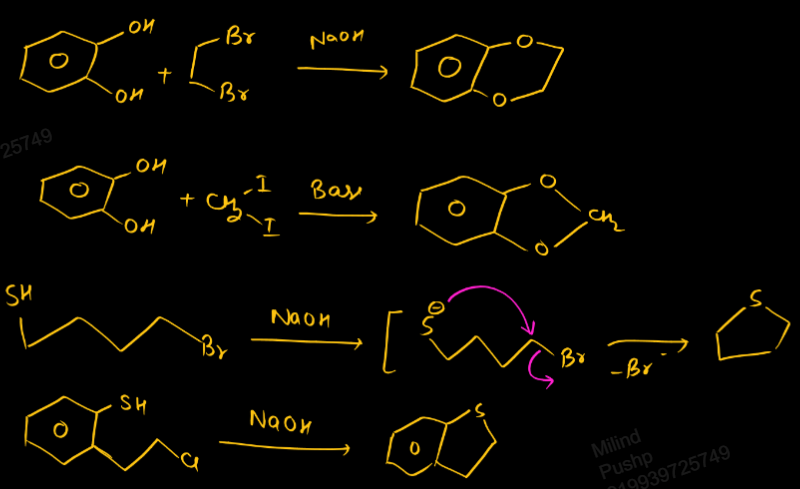 OH
OH
+
Br
Br
NaOH
O
O
25749
OH
OH
+ CH2
I
I
Base
O
O
CH2
SH
Br
NaOH
[
S⊖
Br
-Br-
S
SH
Cl
NaOH
S
Milind
Pushp
919939725749